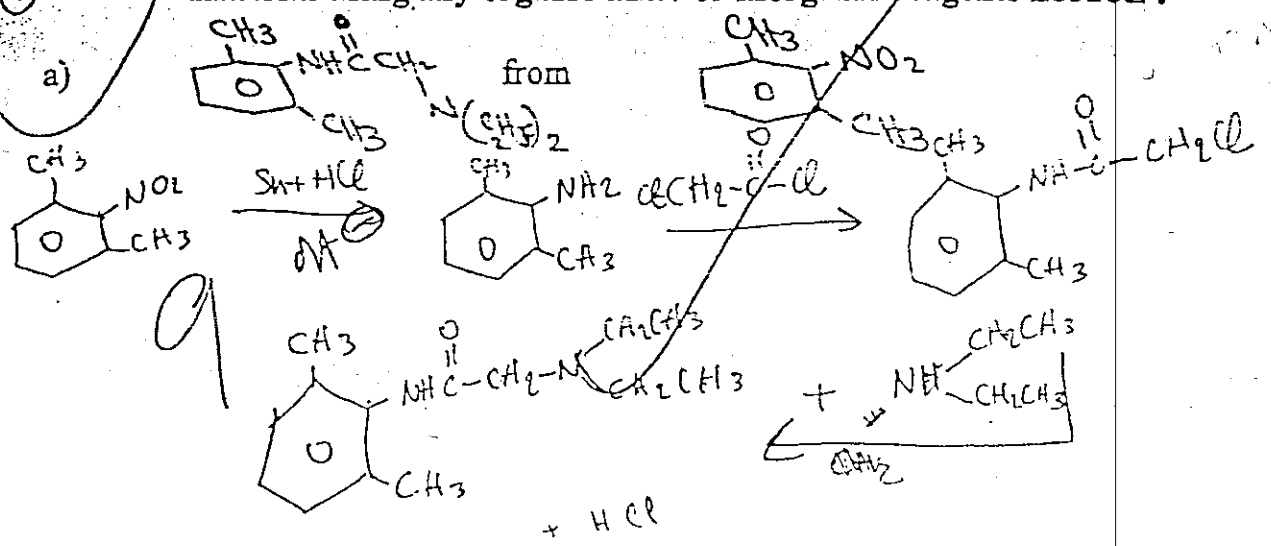 using any organic
a) CH3 NHCCH2 O CH3 N(C2H5)2 from CH3 NO2 CH3
CH3 NO2 CH3 Sn+HCl CH3 NH2 CH3 ClCH2-C-Cl O CH3 NH-C-CH2Cl O CH3
9
CH3 NHC-CH2-N O CH2CH3 CH2CH3 CH3 + NH CH2CH3 CH2CH3
+ HCl